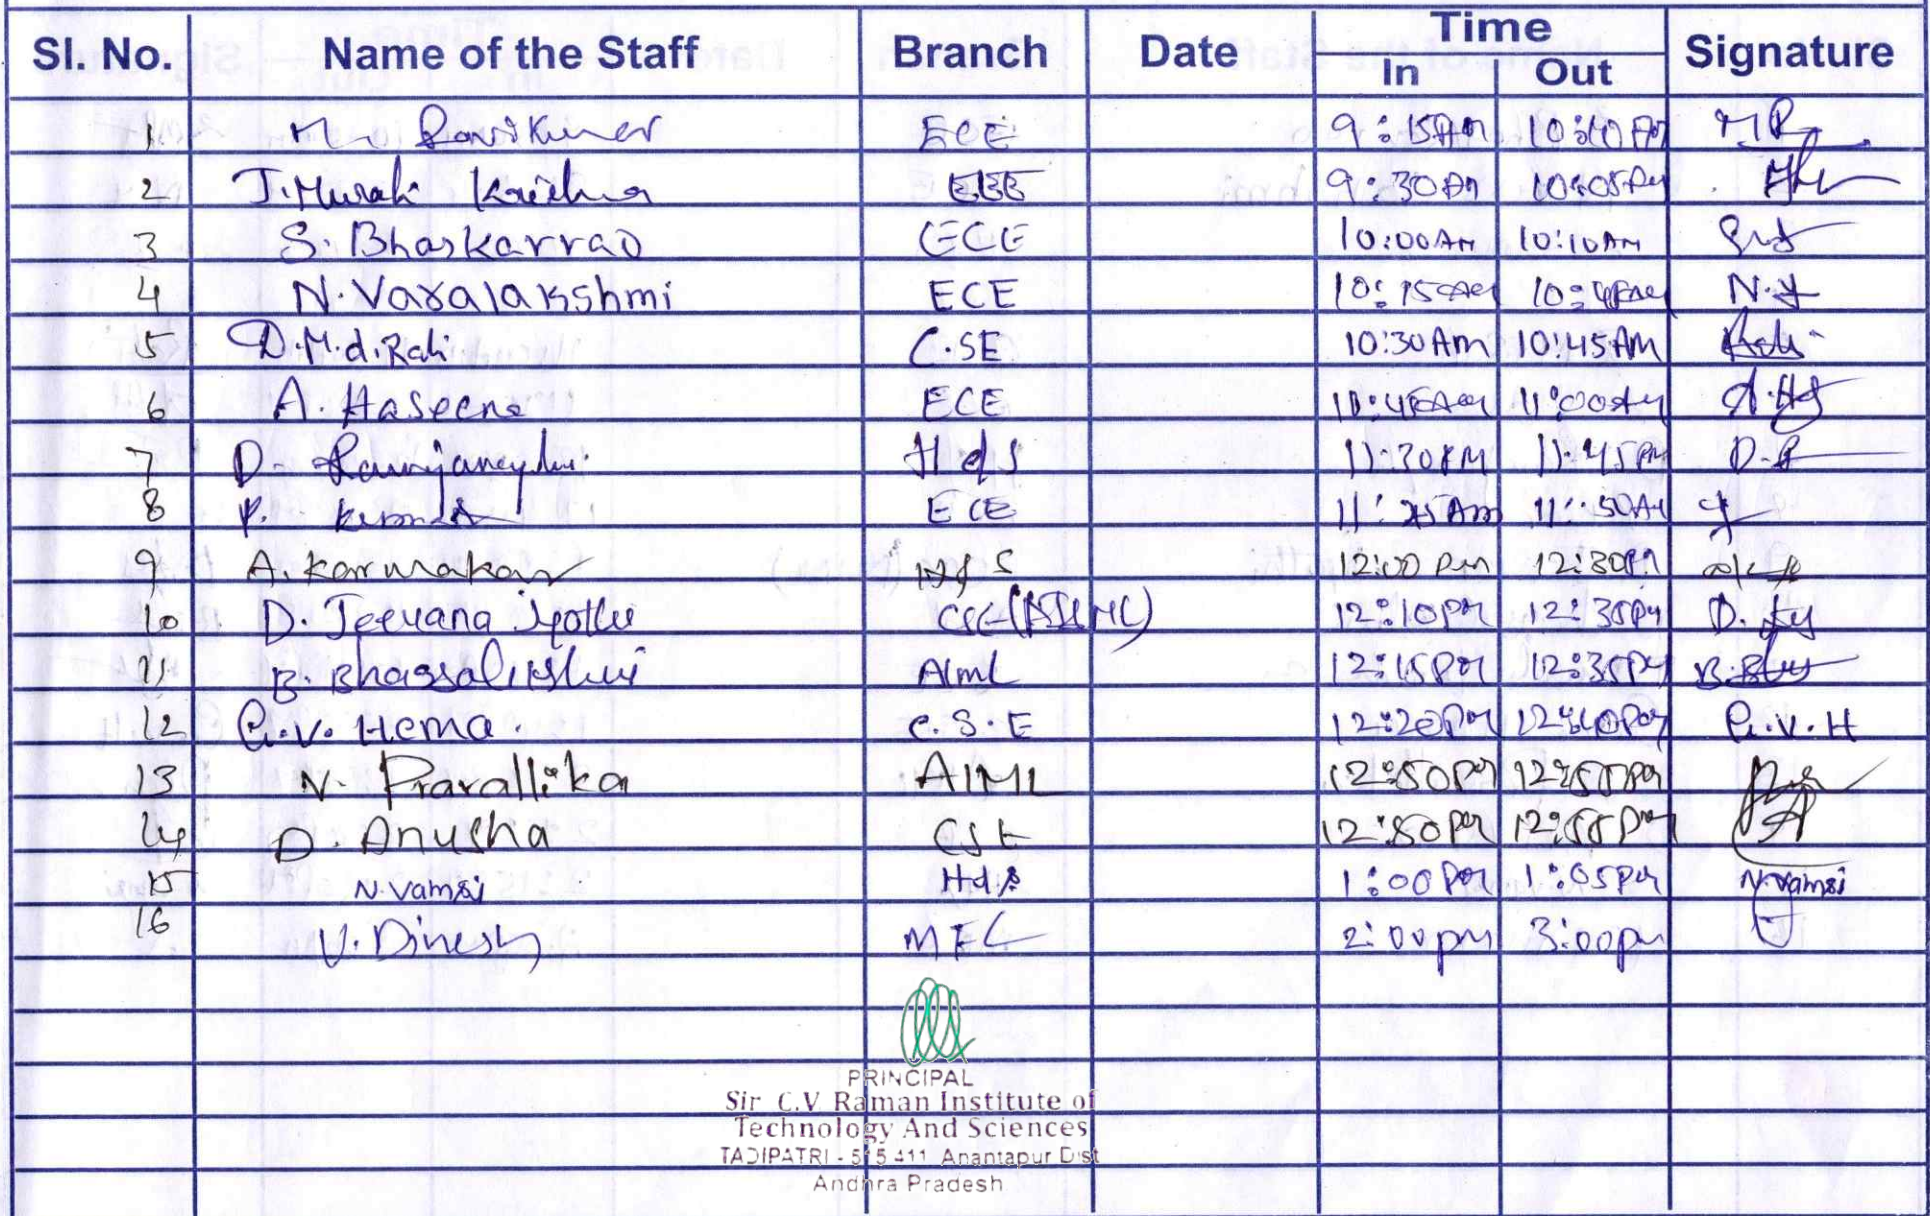 Time
Sl. No. Name of the Staff Branch Date In Out Signature
1 M Ravi Kumar ECE 9:15AM 10:40AM MR
2 J. Murali Krishna EEE 9:30AM 10:05AM
3 S. Bhaskarrao ECE 10:00AM 10:10AM
4 N. Varalakshmi ECE 10:15AM
5 D.M.d.Rafi. C.SE 10:30Am 10:45AM
6 A. Haseena ECE 11:00AM
7 D. Ramanjaneyulu. H&S 11:30AM 11:45AM
8 P. ECE 11:50AM
9 A. Karmakar H&S 12:00 pm 12:30PM
10 D. Jeevana Jyothi CSE-(AIML) 12:10PM 12:30PM
11 B. Aiml 12:15PM 12:35PM
12 G.V. Hema. C.S.E 12:20PM 12:40PM G.V.H
13 N. Pravallika AIML 12:50PM 12:55PM
14 D. Anusha CSE 12:50PM 12:55PM
15 N. Vamsi H&S 1:00PM 1:05PM N.Vamsi
16 V. Dinesh 2:00pm 3:00pm
PRINCIPAL
Sir C.V Raman Institute of
Technology And Sciences
TADIPATRI - 515 411, Anantapur Dist
Andhra Pradesh